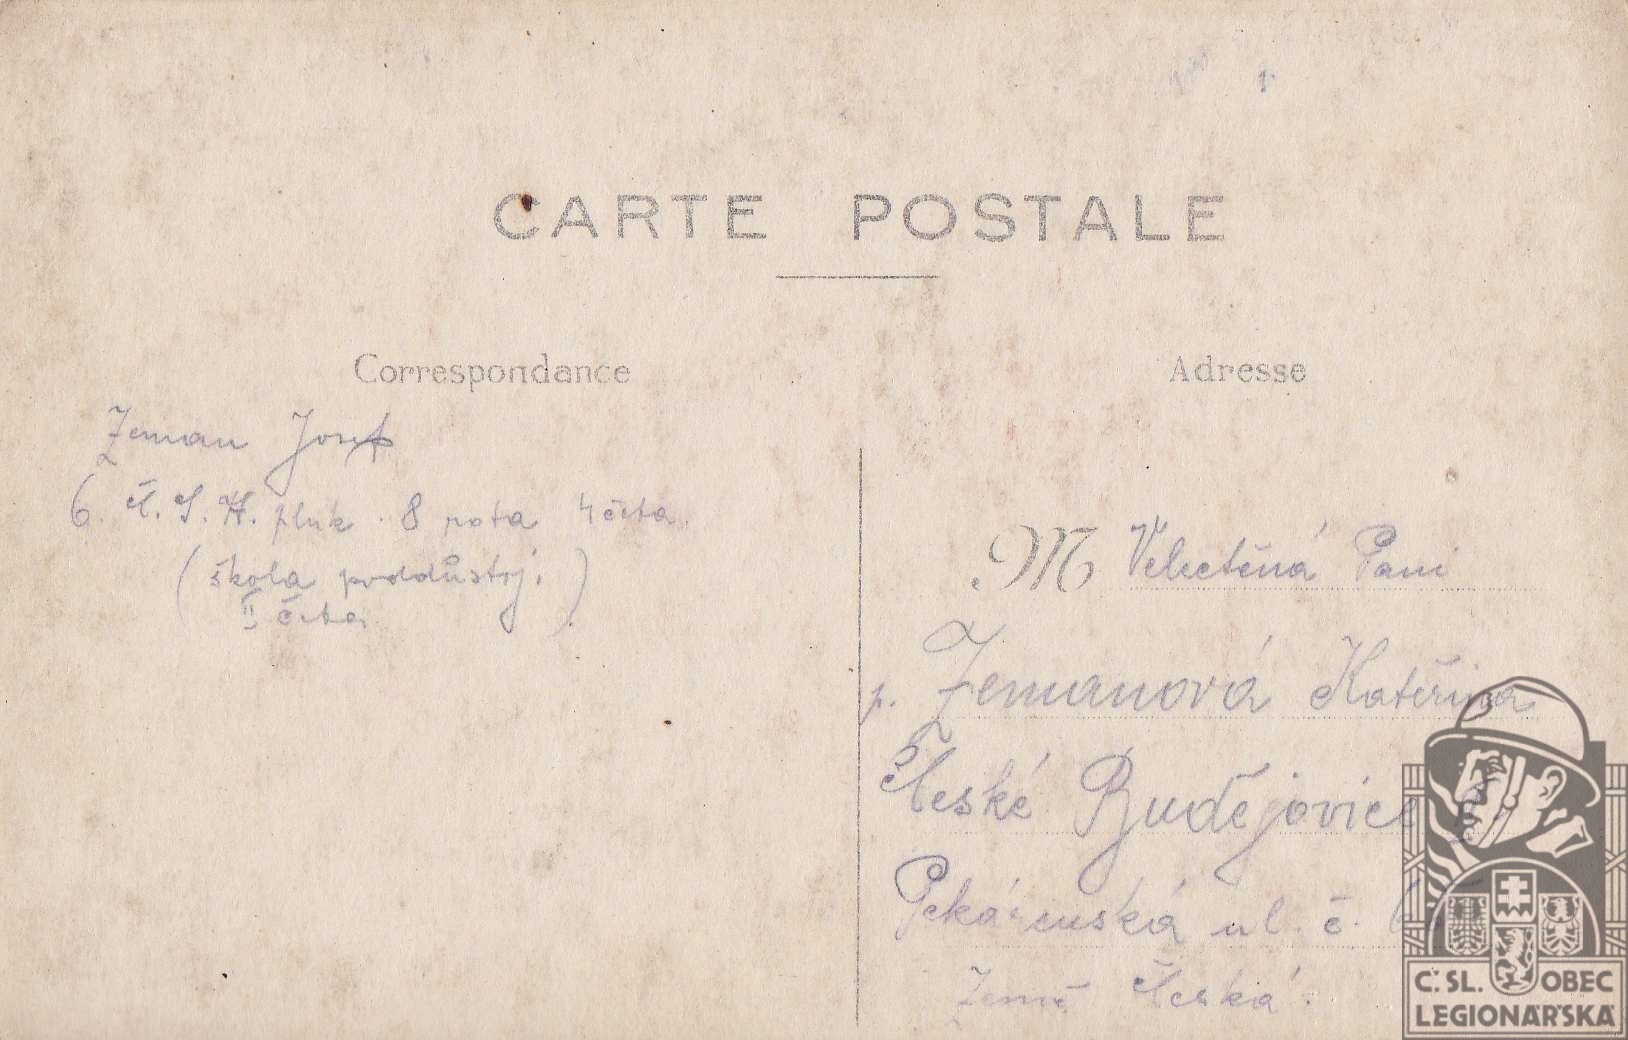 CARTE POSTALE
Correspondance
Zeman Josef
6. Č. S. H. pluk. 8 rota 4 četa.
(škola poddůstoj.
II četa.)
Adresse
M Velectěná Paní
p. Zemanová Kateřina
České Budějovice
Pekárenská ul. č.
Země Česká.
Č. SL. OBEC
LEGIONÁŘSKÁ